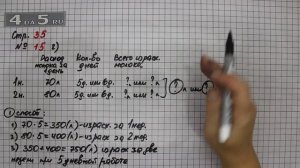 4 ДЗ 5 RU
Стр. 35
№ 15 г)
Расход молока за 1 день Кол-во дней Всего израсх. молока
1 н. 70 л 5 д. или 6 д. ? л или ? л
2 н. 80 л 5 д. или 6 д. ? л или ? л
? л или ?
① способ:
1) 70 · 5 = 350 (л) - израсх. за 1 нед.
2) 80 · 5 = 400 (л) - израсх. за 2 нед.
3) 350 + 400 = 750 (л) израсх за две
недели при 5 дневной работе